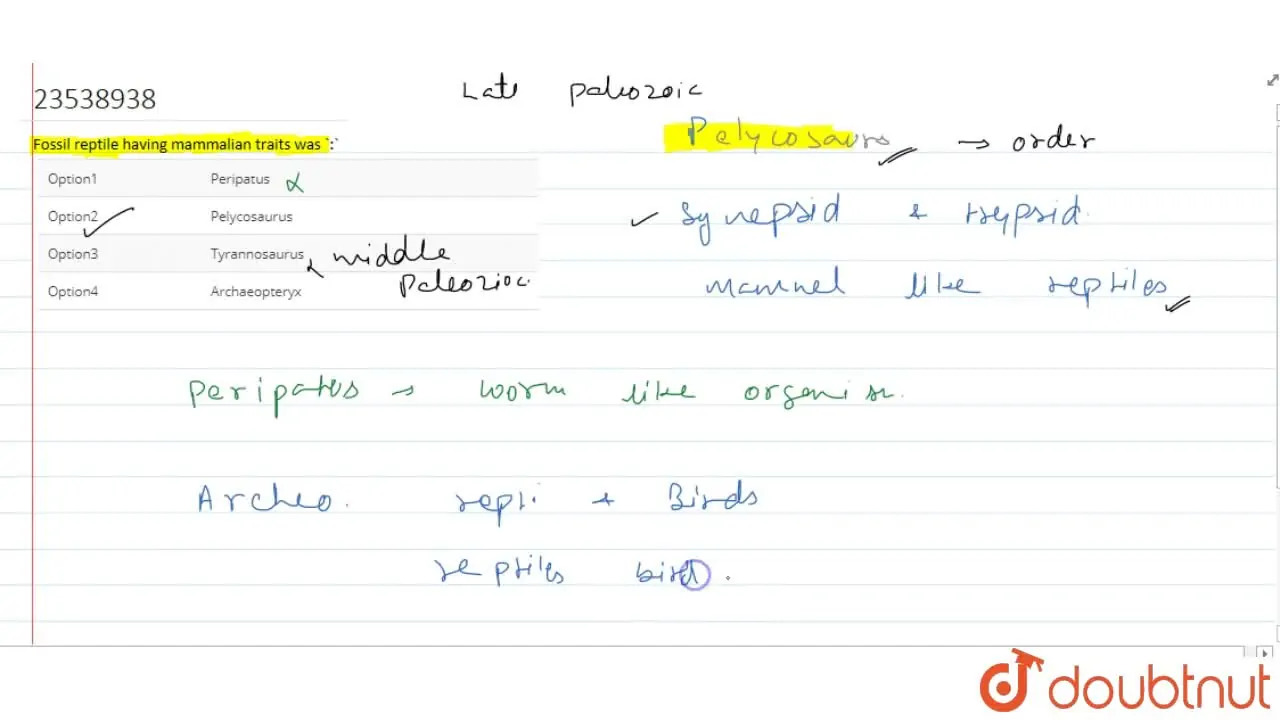 Late paleozoic
23538938
Pelycosaurs → order
Fossil reptile having mammalian traits was `:`
Option1 Peripatus
Option2 Pelycosaurus
Synepsid +
Option3 Tyrannosaurus middle
paleozioc
mammel like reptiles
Option4 Archaeopteryx
Peripatus → worm like organism.
Archeo. repti + Birds
reptiles bird.
doubtnut